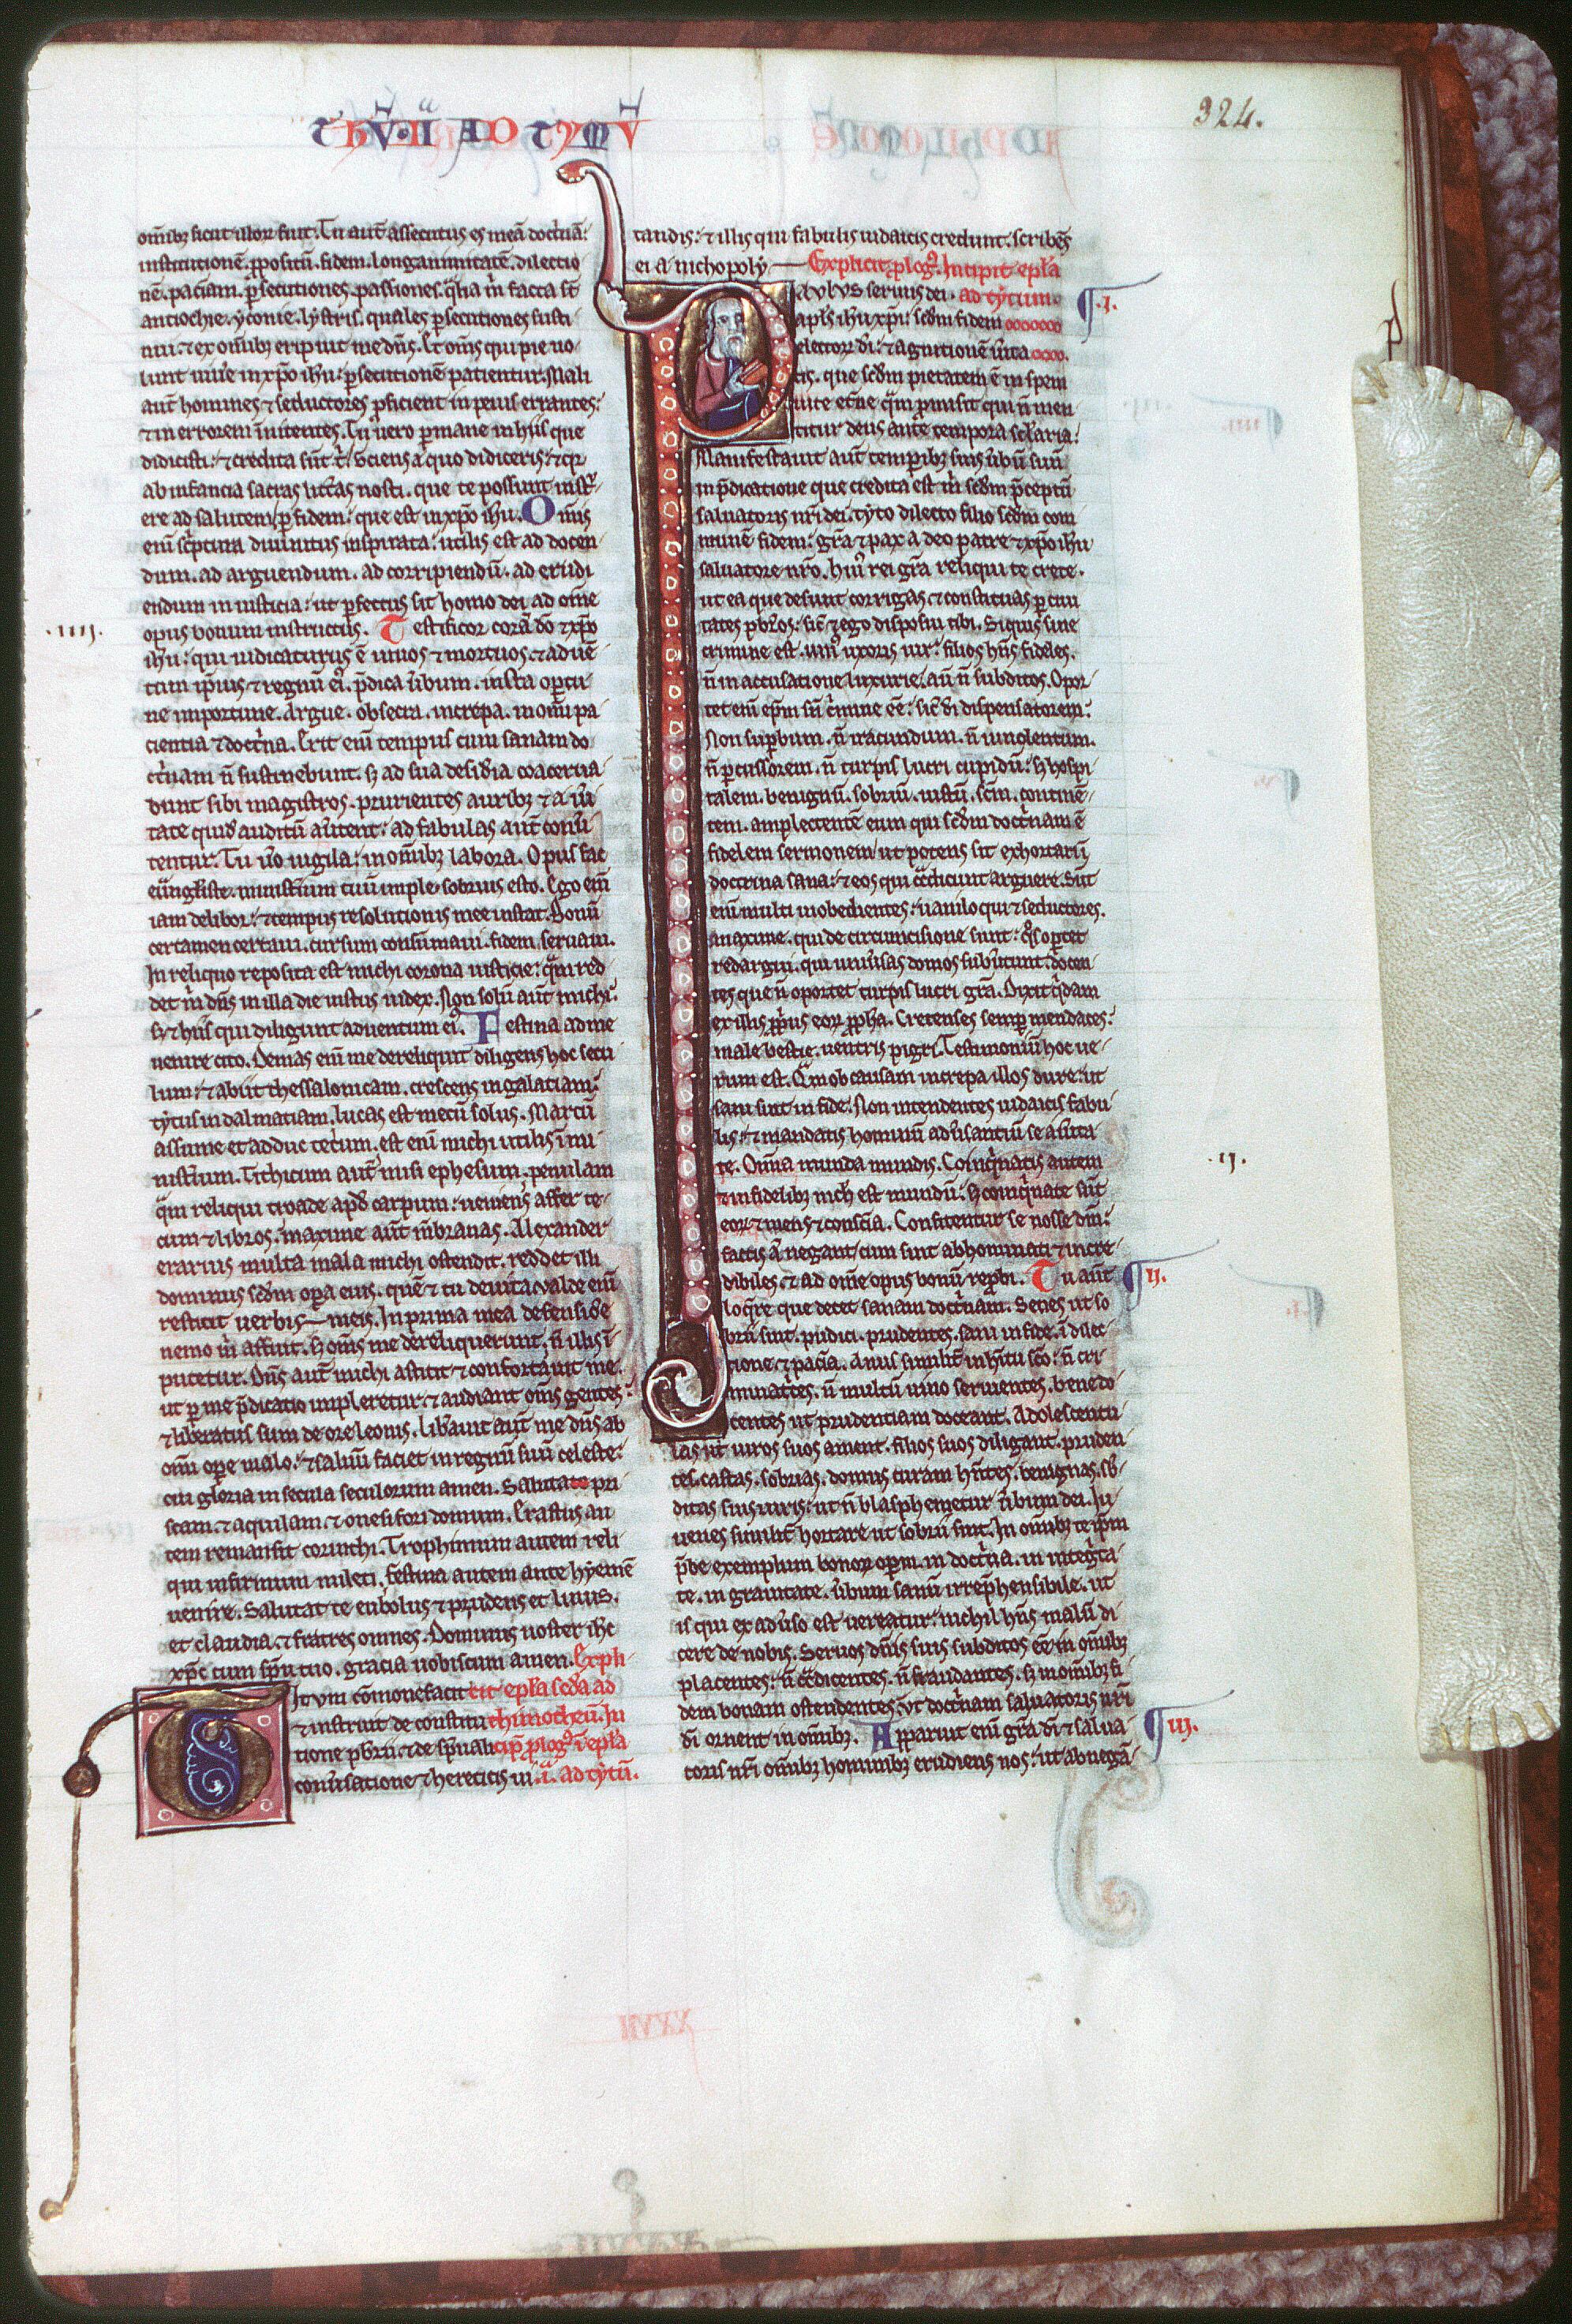 THV̄ . IIᵃ AD TYMV̄
324.
om̄ibȝ sicut illoꝝ fuit. Tu aut̄ assecutus es meā doct'nā:
institutionē. ꝓpositū. fidem. longanimitatē. dilectio
nē. paciam. ꝑsecutiones. passiones. q̄lia m̄ facta st̄
antiochie. yconie. lystris. quales ꝑsecutiones susti
nui. ⁊ ex om̄ibȝ eripuit me dn̄s. Et om̄s qui pie uo
lunt uiu'e in xp̄o ihu: ꝑsecutionē patientur. Mali
aut̄ homines ⁊ seductores ꝓficient in peius errantes:
⁊ in errorem mittentes. Tu uero ꝑmane in hiis que
didicisti: ⁊ credita sūt t'. Sciens a quo didiceris: ⁊ qꝛ
ab infancia sacras litt̄as nosti. que te possunt inst'
ere ad salutem ꝑ fidem: que est in xp̄o ihu. Om̄is
eni sc̄ptura diuinitus inspirata: utilis est ad docen
dum. ad arguendum. ad corripiendū. ad erudi
endum in iusticia: ut ꝑfectus sit homo dei ad om̄e
.IIII.
opus bonum instructus. Testificor corā do ⁊ xp̄o
ihu: qui iudicaturus ē uiuos ⁊ mortuos. ⁊ aduē
tum ip̄ius ⁊ regnū ei'. p̄dica u'bum. insta oportu
ne importune. Argue. obsecra. increpa. in om̄i pa
cientia ⁊ doct'na. Erit eni tempus cum sanam do
ct'nam n̄ sustinebunt. sȝ ad sua desid'ia coacerua
bunt sibi magistros. prurientes auribȝ ⁊ a u'i
tate quid' auditū au'tent: ad fabulas aut̄ conu'
tentur. Tu u'o uigila: in om̄ibȝ labora. Opus fac
eūngliste. minist'ium tuū imple. sobrius esto. Ego eni
iam delibor: ⁊ tempus resolutionis mee instat. Bonū
certamen certaui. cursum consūmaui. fidem seruaui.
In reliquo reposita est michi corona iusticie: q̄m red
det m̄ dn̄s in illa die iustus iudex. Non solū aut̄ michi:
sȝ ⁊ hiis qui diligunt aduentum ei'. Festina ad me
uenire cito. Demas eni me dereliquit diligens hoc secu
lum: ⁊ abiit thessalonicam. crescens in galatiam:
tytus in dalmatiam. lucas est mecū solus. Marcū
assume et adduc tecum. est eni michi utilis ī mi
nist'ium. Tithicum aut̄ misi ephesum. penulam
q̄m reliqui troade apd̄ carpum: ueniens affer te
cum ⁊ libros. maxime aut̄ m̄branas. Alexander
erarius multa mala michi ostendit. reddet illi
dominus scd̄m oꝑa eius. quē ⁊ tu deuita. ualde eni
restitit uerbis meis. In prima mea defensiōe
nemo m̄ affuit. sȝ om̄s me dereliquerunt. n̄ illis ī
putetur. Dn̄s aut̄ michi astitit ⁊ confortauit me.
ut ꝑ me p̄dicatio impleretur: ⁊ audiant om̄s gentes:
⁊ liberatus sum de ore leonis. lib'auit aut̄ me dn̄s ab
om̄i oꝑe malo: ⁊ saluū faciet in regnū suū celeste:
cui gloria in secula seculorum amen. Salutate pri
scam. ⁊ aquilam. ⁊ onesifori domum. Erastus au
tem remansit corinthi. Trophimum autem reli
qui infirmum mileti. festina autem ante hyemē
uenire. Salutat te eubolus ⁊ prudens et linus.
et claudia. ⁊ fratres omnes. Dominus noster ihc
xp̄c cum sp̄u tuo. gracia uobiscum amen. Expli-
cit ep̄la sc̄da ad
thimotheū. In
cip̄ ꝓlog' ī ep̄la
ad tytū.
Titvm cōmonefacit
⁊ instruit de constitu
tione pb'rii: ⁊ de sp̄uali
conu'satione ⁊ hereticis ui
tandis: ⁊ illis qui fabulis iudaicis credunt: scribēs
ei a nichopoly. Explicit ꝓlog'. Incipit ep̄la
ad tytum.
.I.
Pavlvs seruus dei.
apl's ihu xp̄i: scd̄m fidem
electoꝝ di: ⁊ agnitionē u'ita
tis. que scd̄m pietatem ē in spem
uite et'ne q̄m ꝓmisit qui n̄ men
titur deus ante tempora sc̄laria:
Manifestauit aut̄ temꝑibȝ suis u'bū suū
in p̄dicatione que credita est m̄ scd̄m p̄ceptū
saluatoris nr̄i dei. tyto dilecto filio scd̄m com
munē fidem: gr̄a ⁊ pax a deo patre ⁊ xp̄o ihu
saluatore nr̄o. hui' rei gr̄a reliqui te crete.
ut ea que desunt corrigas ⁊ constituas ꝑ ciui
tates pb'ros: sic̄ ⁊ ego disposui tibi. Siquis sine
crimine est. uni' uxoris uir: filios hn̄s fideles.
n̄ in accusatione luxurie. aū n̄ subditos. Opor
tet eni ep̄m sn̄ c'mine ēē: sic̄ di dispensatorem:
Non suꝑbum. n̄ iracundum. n̄ uinolentum.
n̄ ꝑcussorem. n̄ turpis lucri cupidū: sȝ hospi
talem. benignū. sobriū. iustū. scm̄. continē
tem. amplectentē eum qui scd̄m doct'nam ē
fidelem sermonem: ut potens sit exhortari ī
doctrina sana: ⁊ eos qui c̄dicunt arguere. Sūt
eni multi inobedientes: uaniloqui ⁊ seductores.
maxime. qui de circuncisione sunt: q̄s oportet
redargui. qui uniu'sas domos subu'tunt. docen
tes que n̄ oportet turpis lucri gr̄a. Dixit q̄dam
ex illis ꝓpius eoꝝ ꝓpha. Cretenses semꝑ mendaces:
male bestie. uentris pigri. Testimoniū hoc ue
rum est. Q̄m ob causam increpa illos dure: ut
sani sint in fide. Non intendentes iudaicis fabu
lis: ⁊ mandatis hominū adu'santiū se a u'ita
.II.
te. Om̄ia munda mundis. Coinq̄natis autem
⁊ infidelibȝ nich' est mundū: sȝ coinq̄nate sūt
eoꝝ ⁊ mens ⁊ consc̄ia. Confitentur se nosse dm̄:
factis a' negant: cum sint abhominati ⁊ incre
dibiles. ⁊ ad om̄e opus bonū reꝓbi. Tu aut̄
.II.
loq̄re que decet sanam doct'nam. Senes ut so
brii sint. pudici. prudentes. sani in fide. ī dilec
tione. ⁊ paciā. Anus similit̄ in hītu sc̄o: n̄ cri
minat'ces. n̄ multū uino seruientes. bene do
centes ut prudentiam doceant. Adolescentu
las ut uiros suos ament. filios suos diligant. pruden
tes. castas. sobrias. domus curam hn̄tes. benignas. sb'
ditas suis uiris: ut n̄ blasphemetur u'bum dei. Iu
uenes similit̄ hortare ut sobrii sint. In om̄ibȝ te ip̄m
p̄be exemplum bonoꝝ oꝑum. in doct'na. in integ'ta
te. in grauitate. u'bum sanū irrep̄hensibile. ut
is qui ex adu'so est uereatur: nichil hn̄s malū di
cere de nobis. Seruos dn̄is suis subditos ēē in om̄ibȝ
placentes: n̄ c̄dicentes. n̄ fraudantes. sȝ in om̄ibȝ fi
dem bonam ostendentes: vt doct'nam saluatoris nr̄i
.III.
di ornent in om̄ibȝ. Apparuit eni gr̄a di ⁊ salua
toris nr̄i om̄ibȝ hominibȝ erudiens nos: ut abnegā